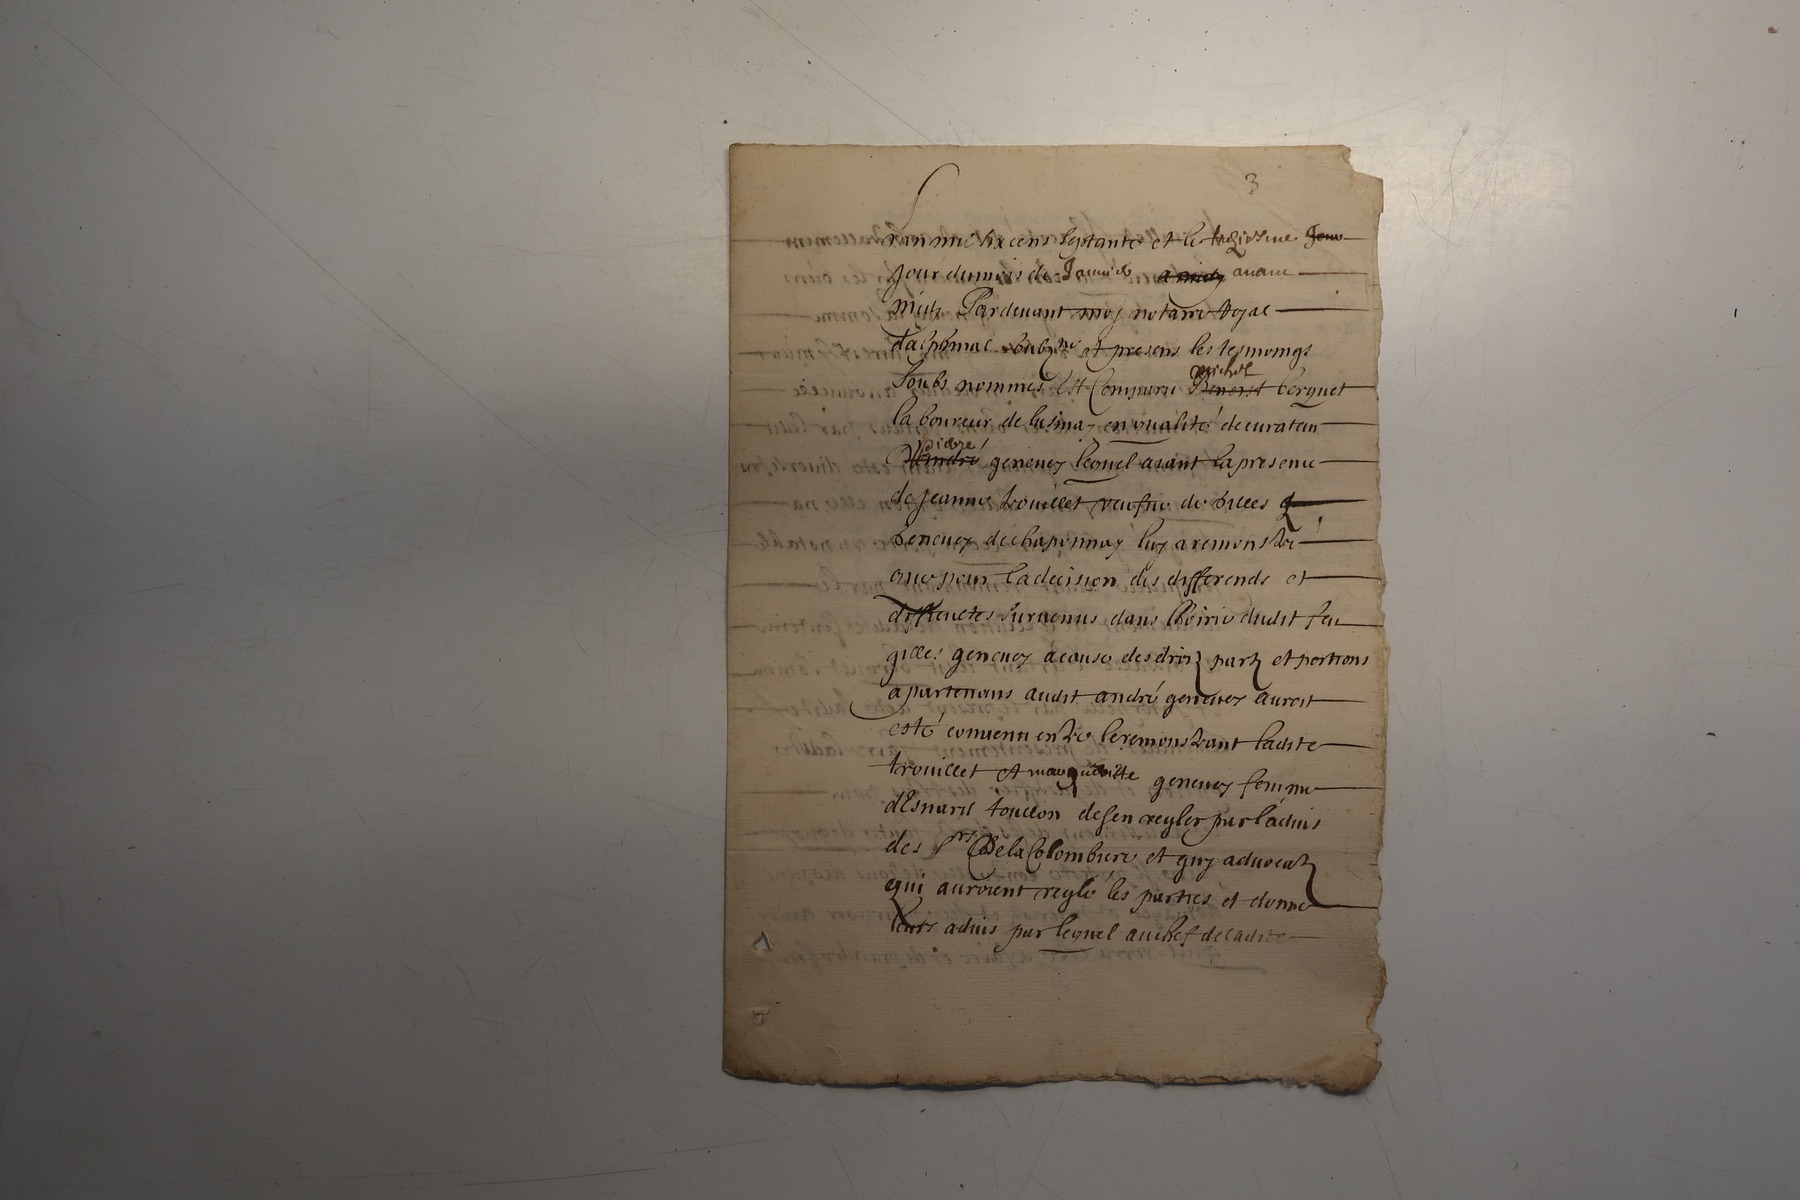 3
L'an mil six cens septante et le treziesme Jour
jour du mois de Januier a midy auant
midy Pardeuant moy notaire Royal
dalphinal et presens les tesmoings
soubs nommes Est Comparu michel Benoist berguet
laboureur de en qualité de curateur
d'André geneuey lequel ayant la presence
de jeanne trouillet veufue de gilles
geneuey de chaponnay luy a remonstré
que pour la decision des differends et
difficultes suruenus dans l'hoirie dudit feu
gilles geneuey a cause des droiz partz et portions
apartenans audit andré geneuey auroit
esté conuenu entre le remonstrant ladite
trouillet et marguerite geneuey femme
d'Esnard toullon de s'en regler par l'aduis
des Srs De la Colombiere et guy aduocatz
qui auroient reglé les parties et donné
leurs aduis par lequel au chef de ladite